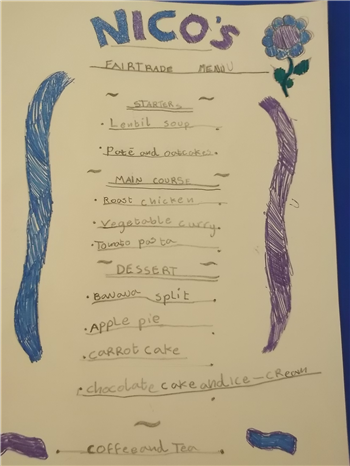 NICO'S
FAIRTRADE MENU
STARTERS
• Lentil soup
• Patè and oatcakes
MAIN COURSE
• Roast chicken
• Vegetable curry
• Tomato pasta
DESSERT
• Banana split
• Apple pie
• carrot cake
• chocolate cake and ice-cream
coffee and Tea